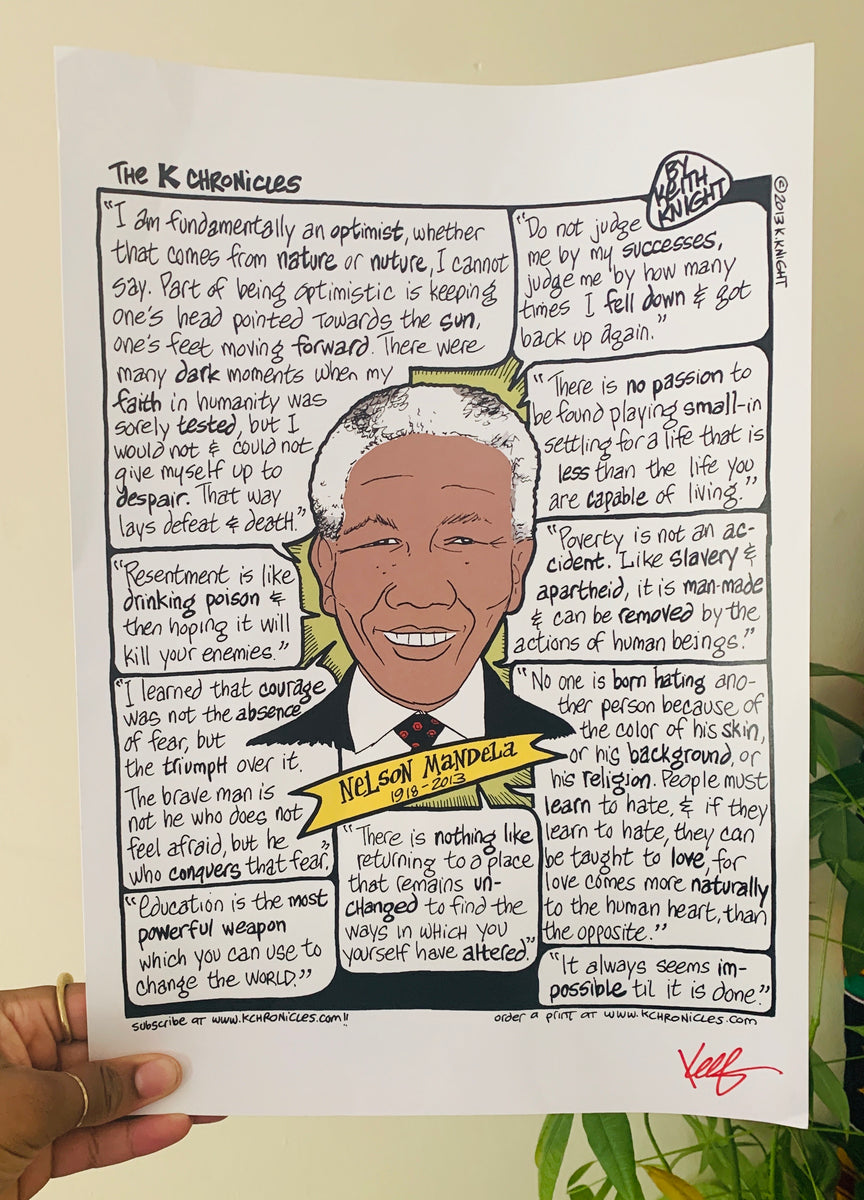 THE K CHRONICLES
BY
KEITH
KNIGHT
© 2013 K. KNIGHT
"I am fundamentally an optimist, whether
that comes from nature or nuture, I cannot
say. Part of being optimistic is keeping
one's head pointed towards the sun,
one's feet moving forward. There were
many dark moments when my
faith in humanity was
sorely tested, but I
would not & could not
give myself up to
despair. That way
lays defeat & death."
"Do not judge
me by my successes,
judge me by how many
times I fell down & got
back up again."
"There is no passion to
be found playing small-in
settling for a life that is
less than the life you
are capable of living."
"Poverty is not an ac-
cident. Like slavery &
apartheid, it is man-made
& can be removed by the
actions of human beings."
"Resentment is like
drinking poison &
then hoping it will
kill your enemies."
"I learned that courage
was not the absence
of fear, but
the triumph over it.
The brave man is
not he who does not
feel afraid, but he
who conquers that fear."
"No one is born hating ano-
ther person because of
the color of his skin,
or his background, or
his religion. People must
learn to hate, & if they
learn to hate, they can
be taught to love, for
love comes more naturally
to the human heart, than
the opposite."
NELSON MANDELA
1918-2013
"There is nothing like
returning to a place
that remains un-
changed to find the
ways in which you
yourself have altered."
"Education is the most
powerful weapon
which you can use to
change the WORLD."
"It always seems im-
possible til it is done."
subscribe at www.kchronicles.com!!
order a print at www.kchronicles.com